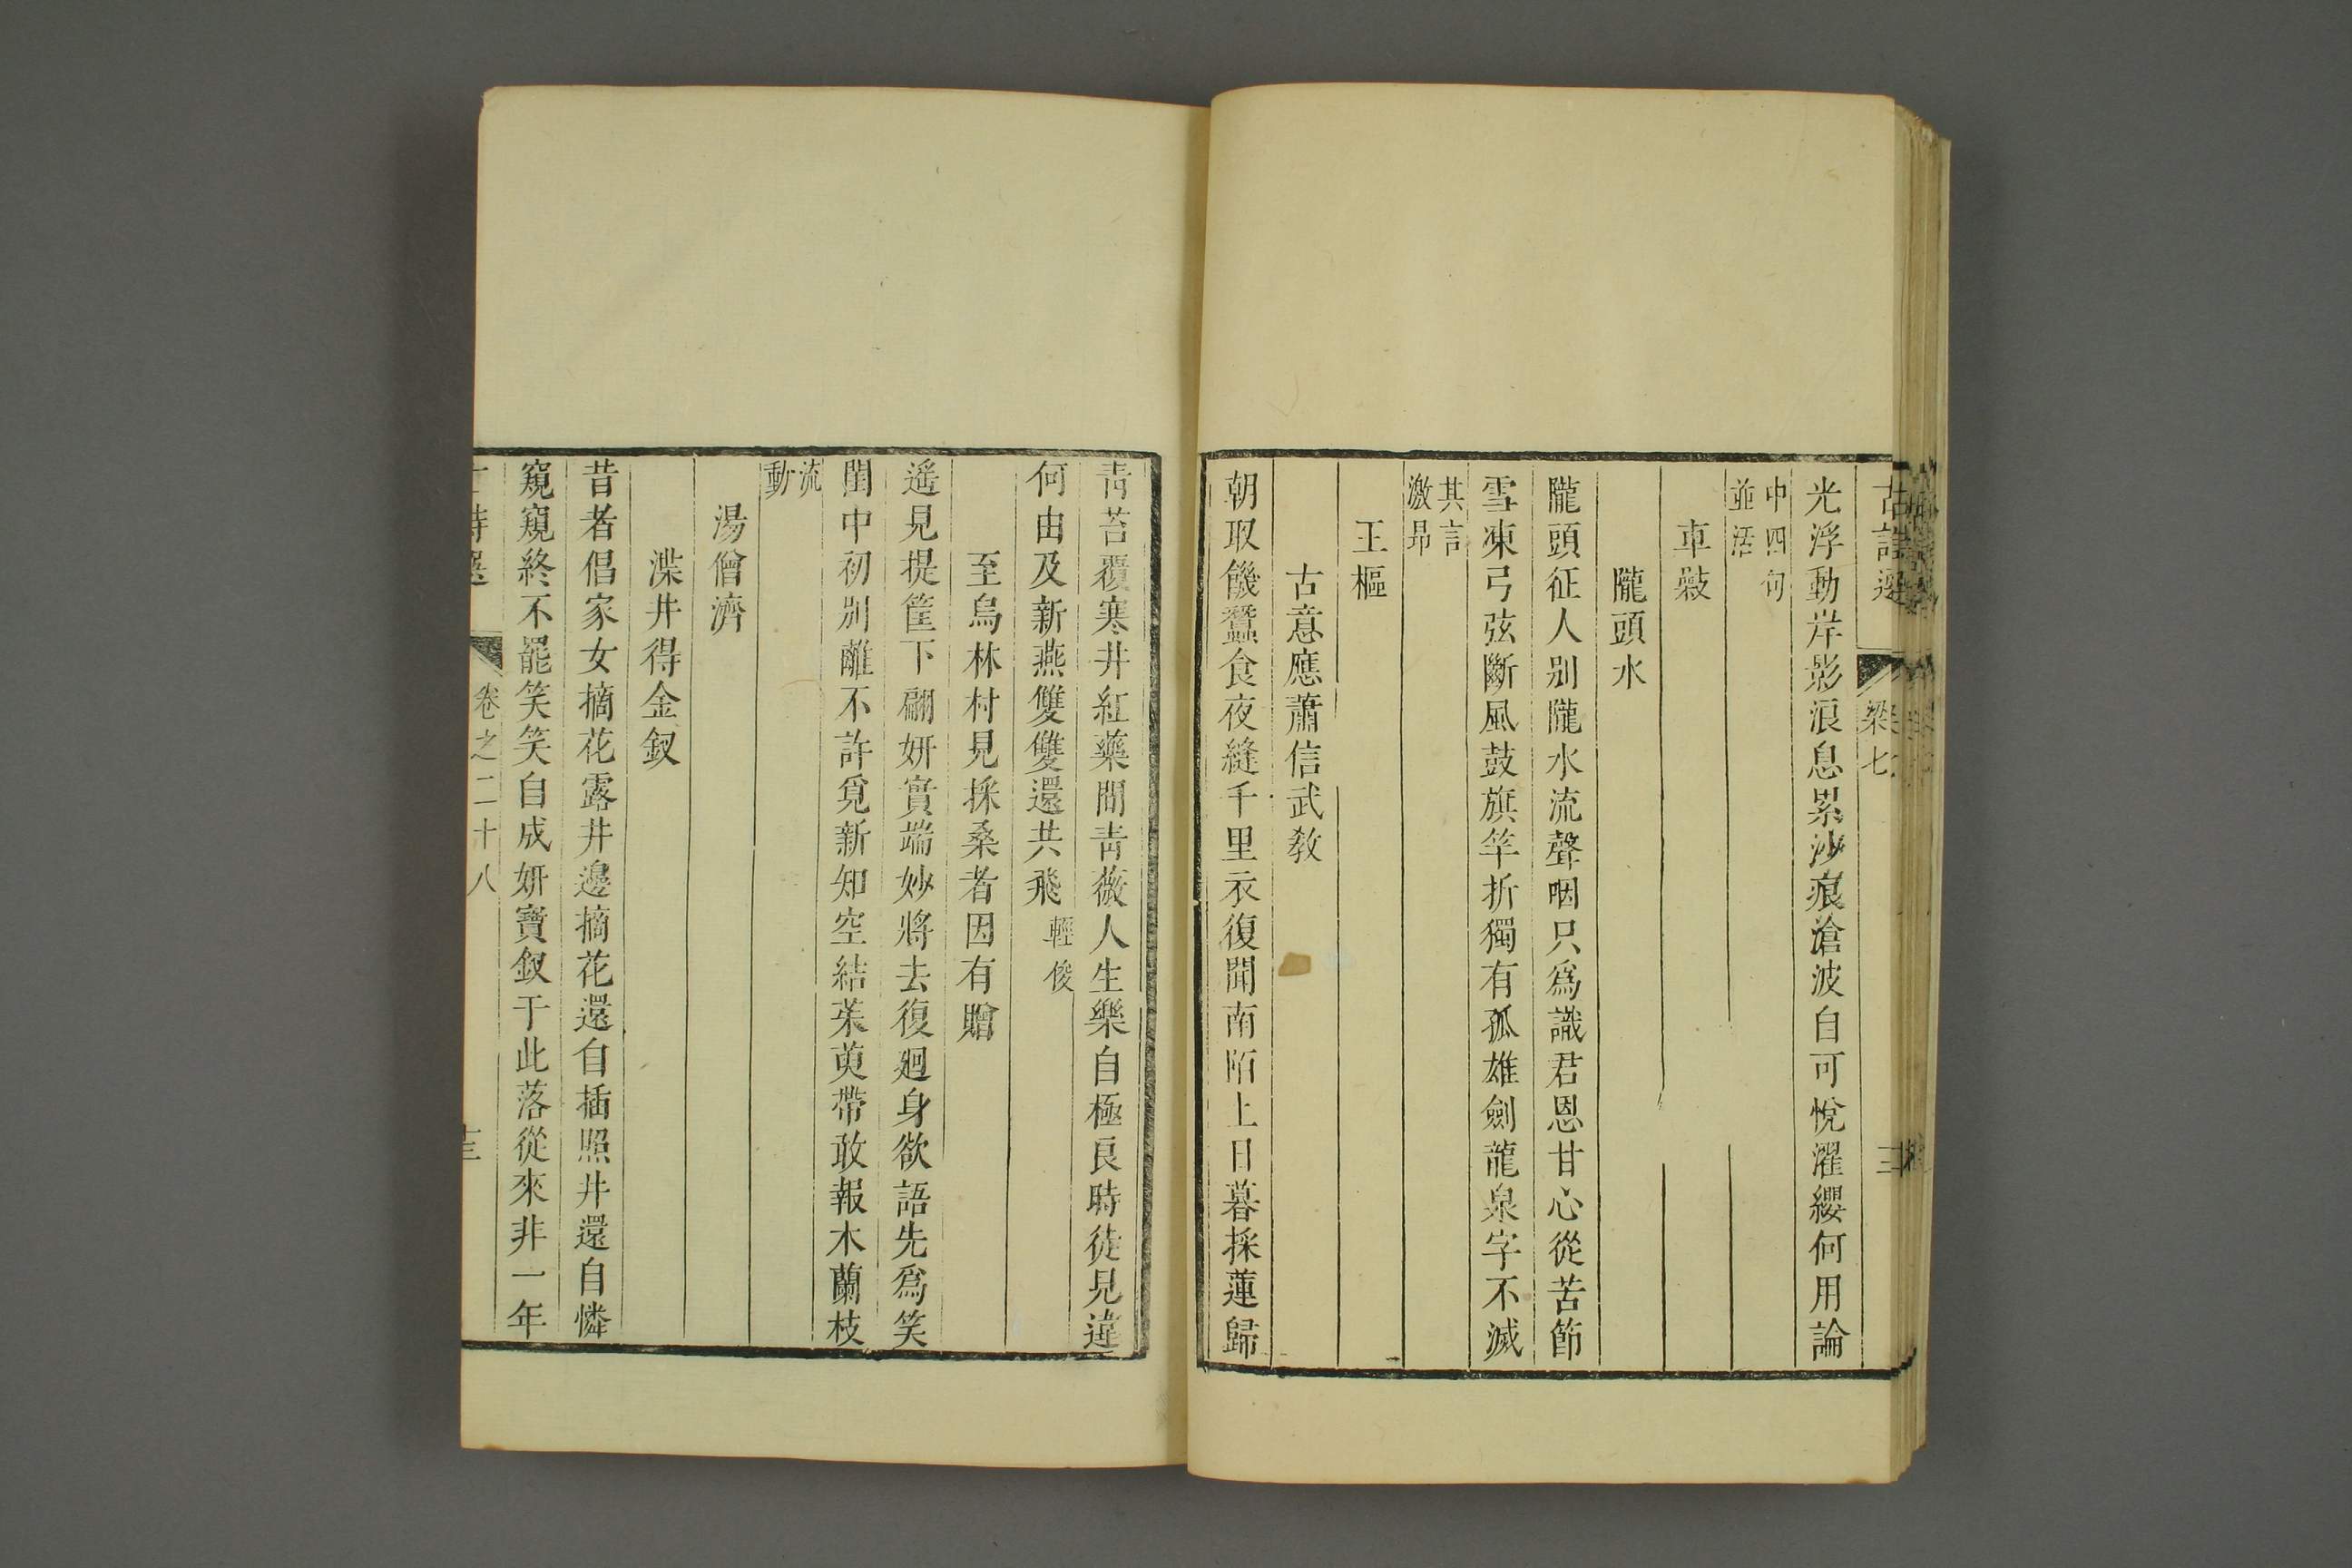 古詩選 梁七
光浮動岸影浪息累沙痕滄波自可悅濯纓何用論
中四句
並活
車𣪊
隴頭水
隴頭征人别隴水流聲咽只爲識君恩甘心從苦節
雪凍弓弦斷風鼓旗竿折獨有孤雄劍龍泉字不滅
其言
激昻
王樞
古意應蕭信武教
朝取饑蠶食夜縫千里衣復聞南陌上日暮採蓮歸
靑苔覆寒井紅藥間靑薇人生樂自極良時徒見違
何由及新燕雙雙還共飛 輕俊
至烏林村見採桑者因有贈
遙見提筐下翩妍實端妙將去復廻身欲語先爲笑
閨中初别離不許覓新知空結茱萸帶敢報木蘭枝
流
動
湯僧濟
渫井得金釵
昔者倡家女摘花露井邊摘花還自插照井還自憐
窺窺終不罷笑笑自成妍寶釵于此落從來非一年
卷之二十八